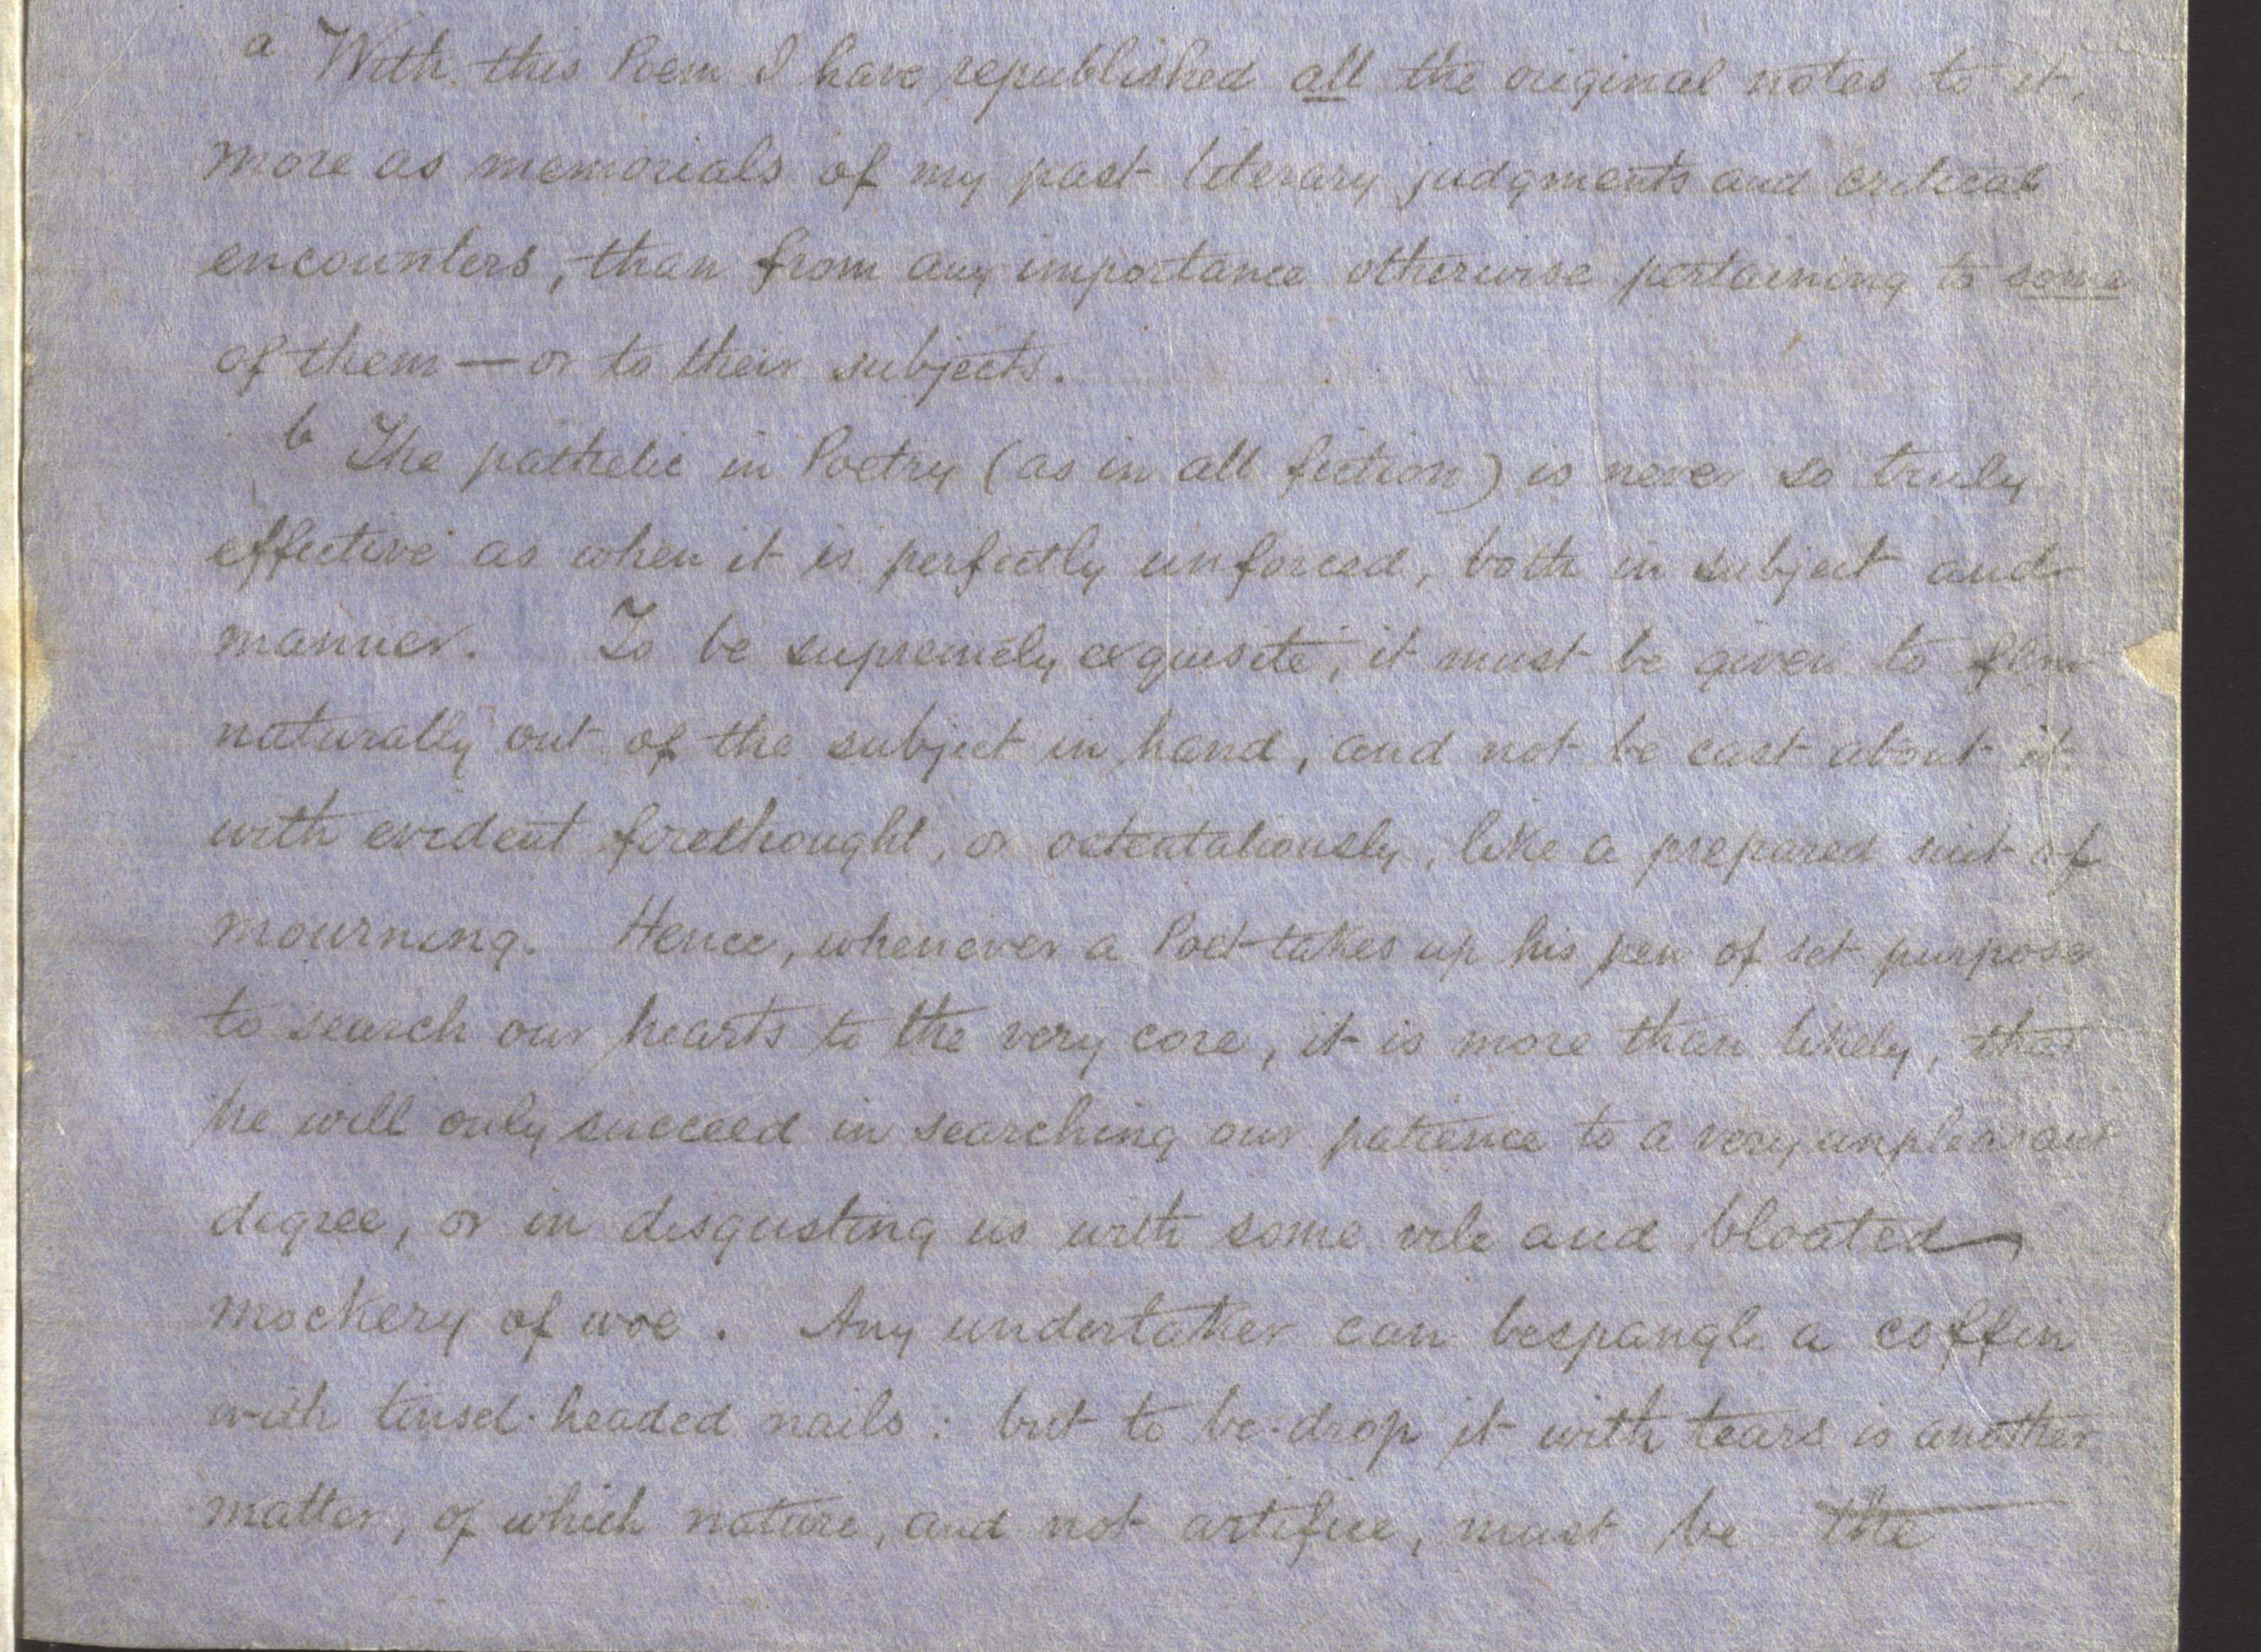 a With this Poem I have republished all the original notes to it,
more as memorials of my past literary judgments and critical
encounters, than from any importance otherwise pertaining to some
of them — or to their subjects.
b The pathetic in Poetry (as in all fiction) is never so truly
effective as when it is perfectly unforced, both in subject and
manner. To be supremely exquisite, it must be given to flow
naturally out of the subject in hand, and not be cast about it
with evident forethought, or ostentatiously, like a prepared suit of
mourning. Hence, whenever a Poet takes up his pen of set purpose
to search our hearts to the very core, it is more than likely, that
he will only succeed in searching our patience to a very unpleasant
degree, or in disgusting us with some vile and bloated
mockery of woe. Any undertaker can bespangle a coffin
with tinsel-headed nails: but to be-drop it with tears is another
matter, of which nature, and not artifice, must be the